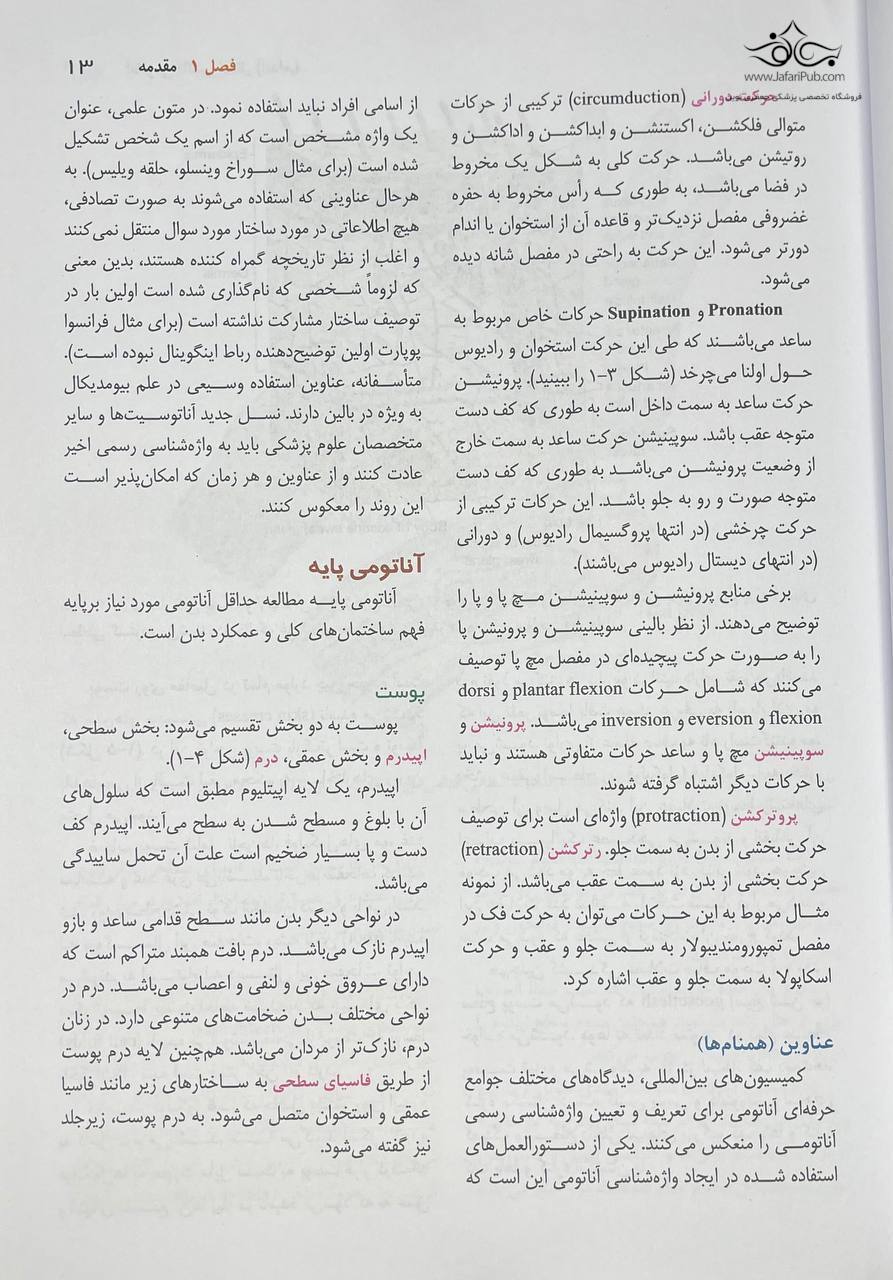 www.JafariPub.com
فروشگاه تخصصی پزشکی جعفری نوین
فصل ۱ مقدمه ۱۳
حرکت دورانی (circumduction) ترکیبی از حرکات
متوالی فلکشن، اکستنشن و ابداکشن و اداکشن و
روتیشن می‌باشد. حرکت کلی به شکل یک مخروط
در فضا می‌باشد، به طوری که رأس مخروط به حفره
غضروفی مفصل نزدیک‌تر و قاعده آن از استخوان یا اندام
دورتر می‌شود. این حرکت به راحتی در مفصل شانه دیده
می‌شود.
Pronation و Supination حرکات خاص مربوط به
ساعد می‌باشند که طی این حرکت استخوان و رادیوس
حول اولنا می‌چرخد (شکل ۳-۱ را ببینید). پرونیشن
حرکت ساعد به سمت داخل است به طوری که کف دست
متوجه عقب باشد. سوپینیشن حرکت ساعد به سمت خارج
از وضعیت پرونیشن می‌باشد به طوری که کف دست
متوجه صورت و رو به جلو باشد. این حرکات ترکیبی از
حرکت چرخشی (در انتها پروگسیمال رادیوس) و دورانی
(در انتهای دیستال رادیوس می‌باشند).
برخی منابع پرونیشن و سوپینیشن مچ پا و پا را
توضیح می‌دهند. از نظر بالینی سوپینیشن و پرونیشن پا
را به صورت حرکت پیچیده‌ای در مفصل مچ پا توصیف
می‌کنند که شامل حرکات plantar flexion و dorsi
flexion و eversion و inversion می‌باشد. پرونیشن و
سوپینیشن مچ پا و ساعد حرکات متفاوتی هستند و نباید
با حرکات دیگر اشتباه گرفته شوند.
پروترکشن (protraction) واژه‌ای است برای توصیف
حرکت بخشی از بدن به سمت جلو. رترکشن (retraction)
حرکت بخشی از بدن به سمت عقب می‌باشد. از نمونه
مثال مربوط به این حرکات می‌توان به حرکت فک در
مفصل تمپورومندیبولار به سمت جلو و عقب و حرکت
اسکاپولا به سمت جلو و عقب اشاره کرد.
عناوین (همنام‌ها)
کمیسیون‌های بین‌المللی، دیدگاه‌های مختلف جوامع
حرفه‌ای آناتومی برای تعریف و تعیین واژه‌شناسی رسمی
آناتومی را منعکس می‌کنند. یکی از دستورالعمل‌های
استفاده شده در ایجاد واژه‌شناسی آناتومی این است که
از اسامی افراد نباید استفاده نمود. در متون علمی، عنوان
یک واژه مشخص است که از اسم یک شخص تشکیل
شده است (برای مثال سوراخ وینسلو، حلقه ویلیس). به
هرحال عناوینی که استفاده می‌شوند به صورت تصادفی،
هیچ اطلاعاتی در مورد ساختار مورد سوال منتقل نمی‌کنند
و اغلب از نظر تاریخچه گمراه کننده هستند، بدین معنی
که لزوماً شخصی که نام‌گذاری شده است اولین بار در
توصیف ساختار مشارکت نداشته است (برای مثال فرانسوا
پوپارت اولین توضیح‌دهنده رباط اینگوینال نبوده است).
متأسفانه، عناوین استفاده وسیعی در علم بیومدیکال
به ویژه در بالین دارند. نسل جدید آناتوسیت‌ها و سایر
متخصصان علوم پزشکی باید به واژه‌شناسی رسمی اخیر
عادت کنند و از عناوین و هر زمان که امکان‌پذیر است
این روند را معکوس کنند.
آناتومی پایه
آناتومی پایه مطالعه حداقل آناتومی مورد نیاز برپایه
فهم ساختمان‌های کلی و عمکلرد بدن است.
پوست
پوست به دو بخش تقسیم می‌شود: بخش سطحی،
اپیدرم و بخش عمقی، درم (شکل ۴-۱).
اپیدرم، یک لایه اپیتلیوم مطبق است که سلول‌های
آن با بلوغ و مسطح شدن به سطح می‌آیند. اپیدرم کف
دست و پا بسیار ضخیم است علت آن تحمل ساییدگی
می‌باشد.
در نواحی دیگر بدن مانند سطح قدامی ساعد و بازو
اپیدرم نازک می‌باشد. درم بافت همبند متراکم است که
دارای عروق خونی و لنفی و اعصاب می‌باشد. درم در
نواحی مختلف بدن ضخامت‌های متنوعی دارد. در زنان
درم، نازک‌تر از مردان می‌باشد. هم‌چنین لایه درم پوست
از طریق فاسیای سطحی به ساختارهای زیر مانند فاسیا
عمقی و استخوان متصل می‌شود. به درم پوست، زیرجلد
نیز گفته می‌شود.